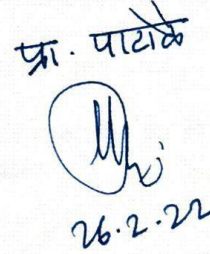 प्रा. पाटोळे
26.2.22